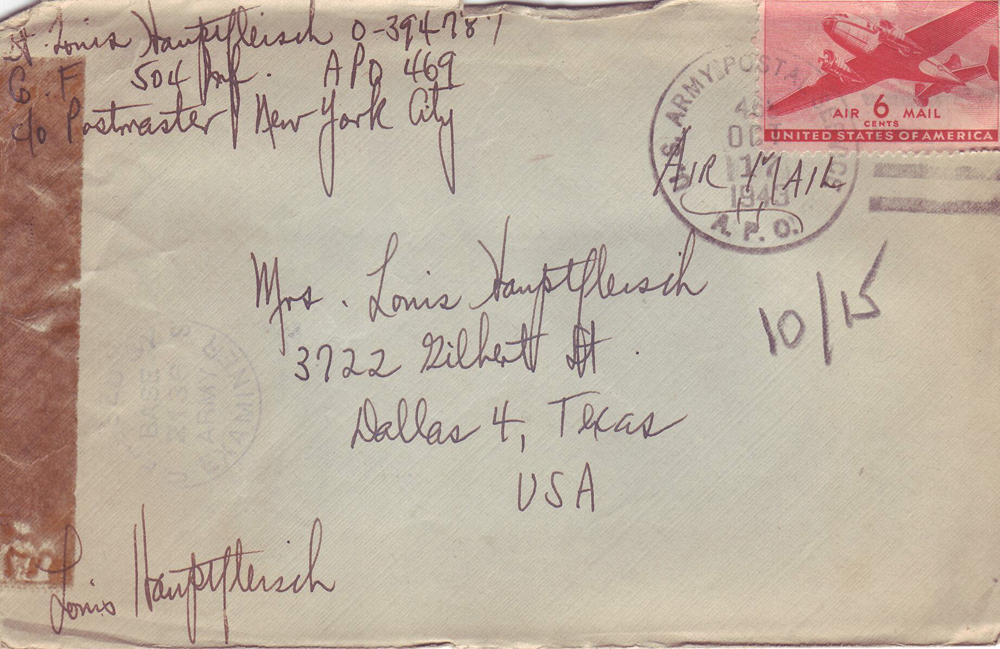 Lt. Louis Hauptfleisch O-394787
Co. F 504 Inf. APO 469
c/o Postmaster New York City
AIR 6 MAIL
CENTS
UNITED STATES OF AMERICA
U.S. ARMY POSTAL
OCT
17
1943
A.P.O.
AIR MAIL
Mrs. Louis Hauptfleisch
3722 Gilbert St.
Dallas 4, Texas
USA
10/15
BASE
ARMY
Louis Hauptfleisch